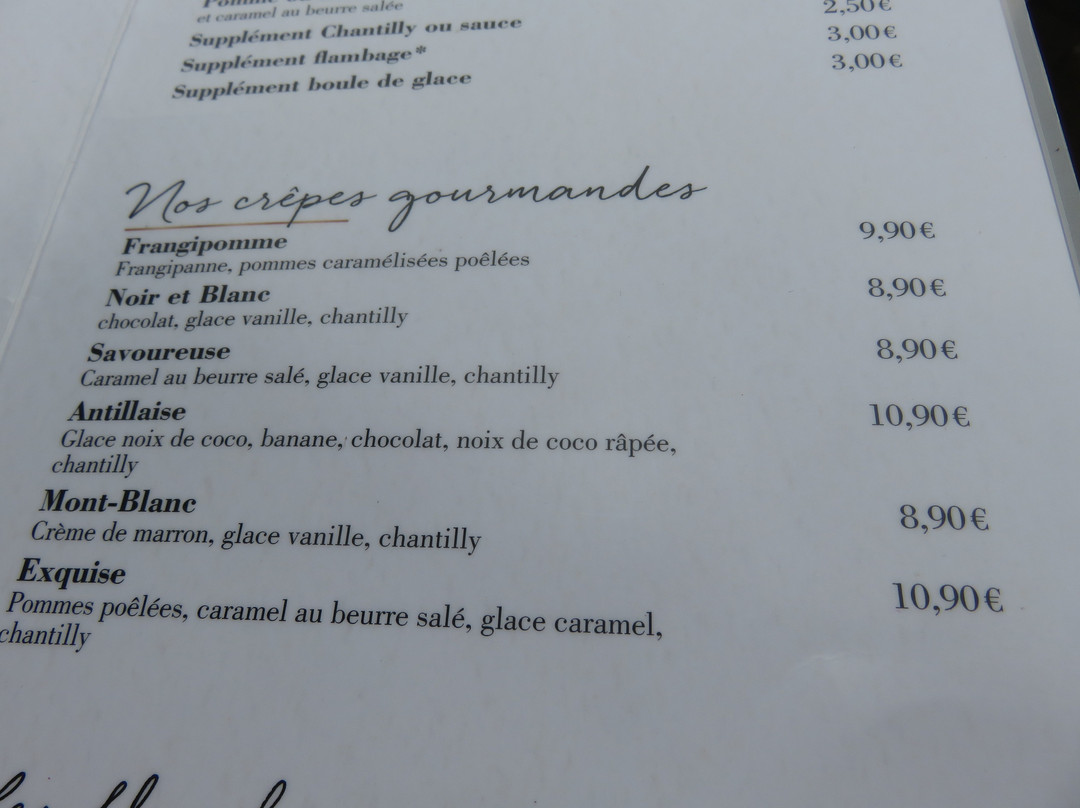 et caramel au beurre salée
Supplément Chantilly ou sauce 2,50€
Supplément flambage* 3,00€
Supplément boule de glace 3,00€
Nos crêpes gourmandes
Frangipomme 9,90€
Frangipanne, pommes caramélisées poêlées
Noir et Blanc 8,90€
chocolat, glace vanille, chantilly
Savoureuse 8,90€
Caramel au beurre salé, glace vanille, chantilly
Antillaise 10,90€
Glace noix de coco, banane, chocolat, noix de coco râpée,
chantilly
Mont-Blanc 8,90€
Crème de marron, glace vanille, chantilly
Exquise 10,90€
Pommes poêlées, caramel au beurre salé, glace caramel,
chantilly